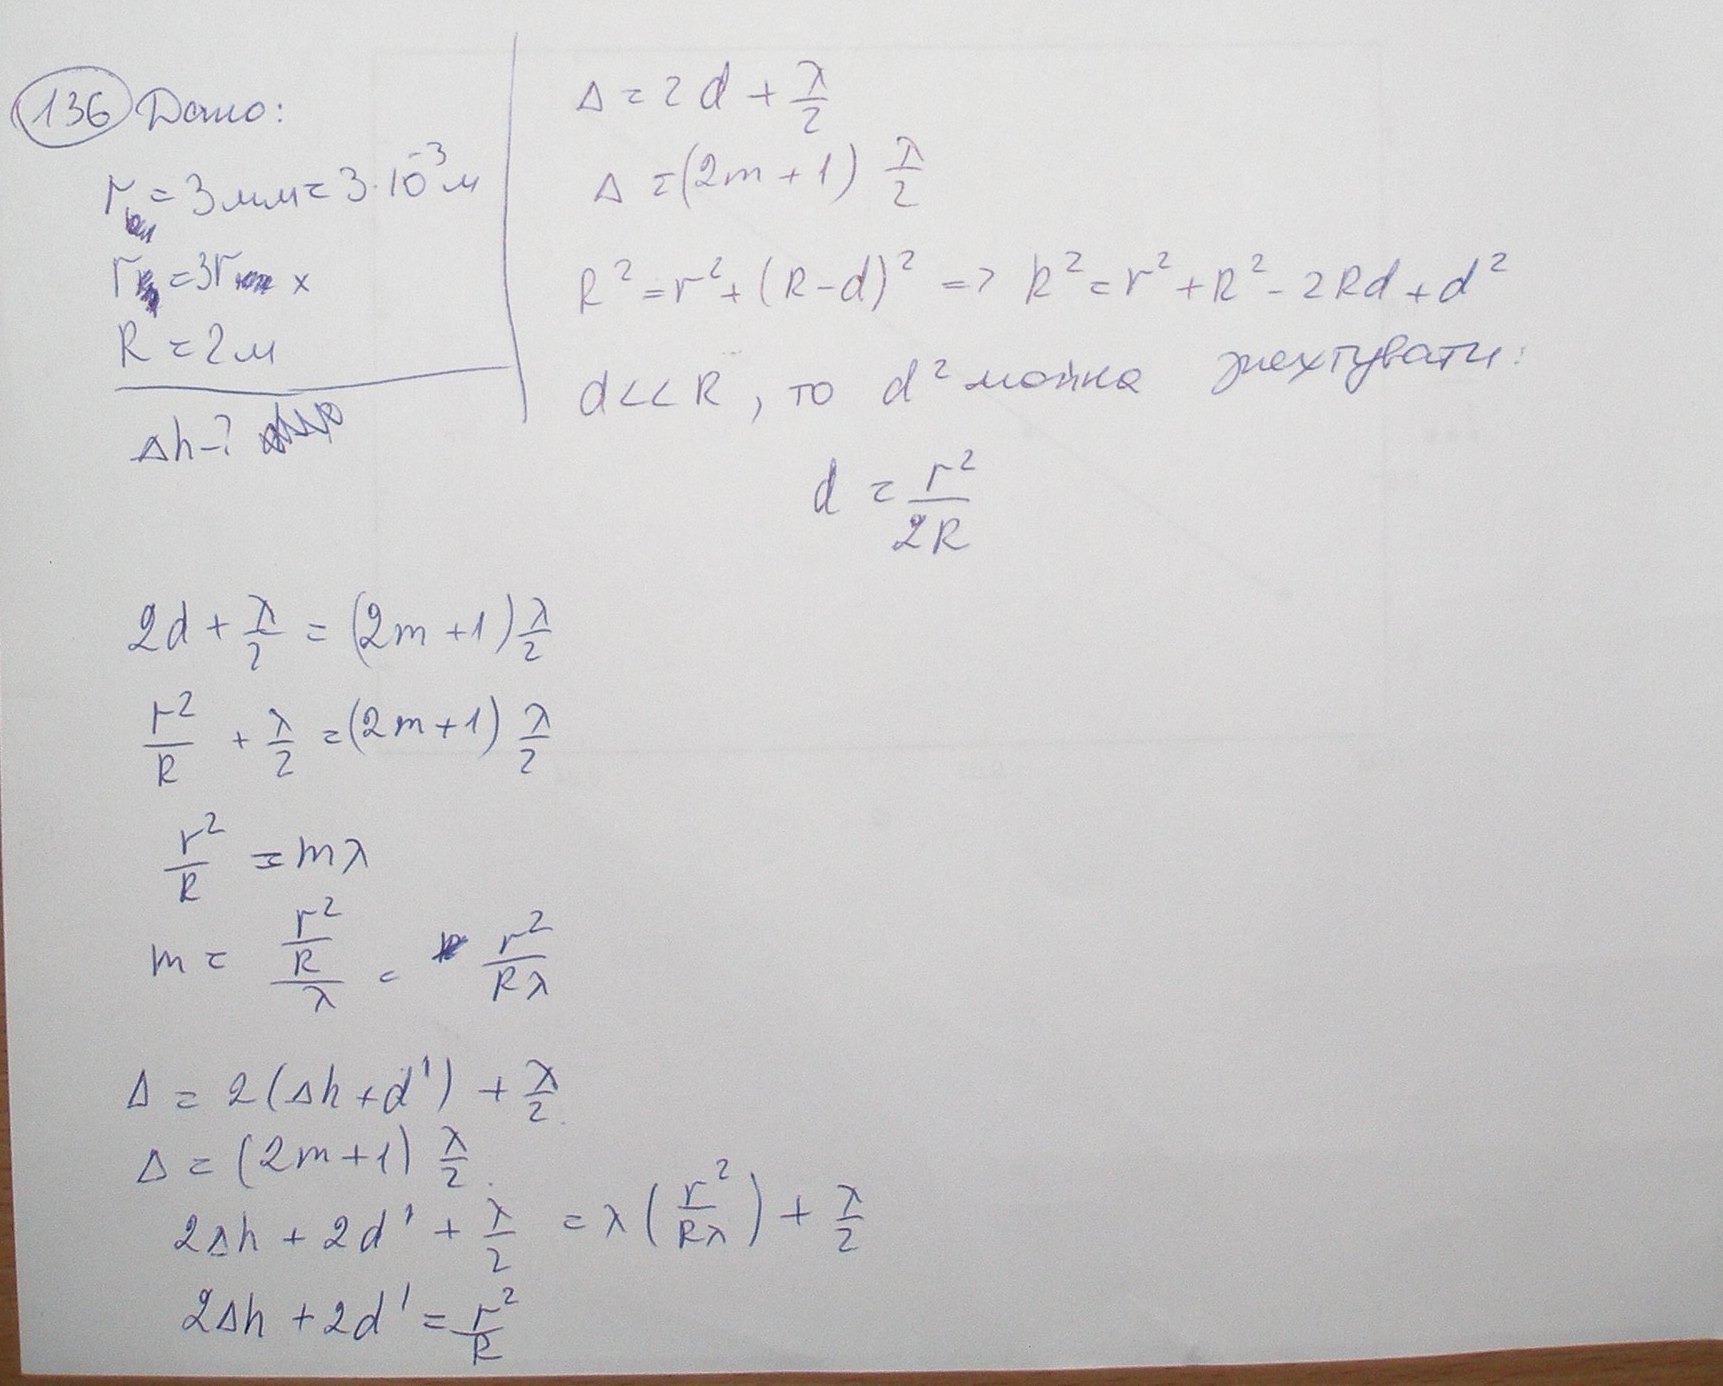 136 Дано:
r = 3мм = 3·10⁻³ м
r = 3r x
R = 2м
Δh-?
Δ = 2d + λ/2
Δ = (2m+1) λ/2
R² = r² + (R-d)² => R² = r² + R² - 2Rd + d²
d<<R, то d² можна знехтувати:
d = r²/2R
2d + λ/2 = (2m+1) λ/2
r²/R + λ/2 = (2m+1) λ/2
r²/R = mλ
m = (r²/R)/λ = r²/Rλ
Δ = 2(Δh+d') + λ/2
Δ = (2m+1) λ/2
2Δh + 2d' + λ/2 = λ(r²/Rλ) + λ/2
2Δh + 2d' = r²/R